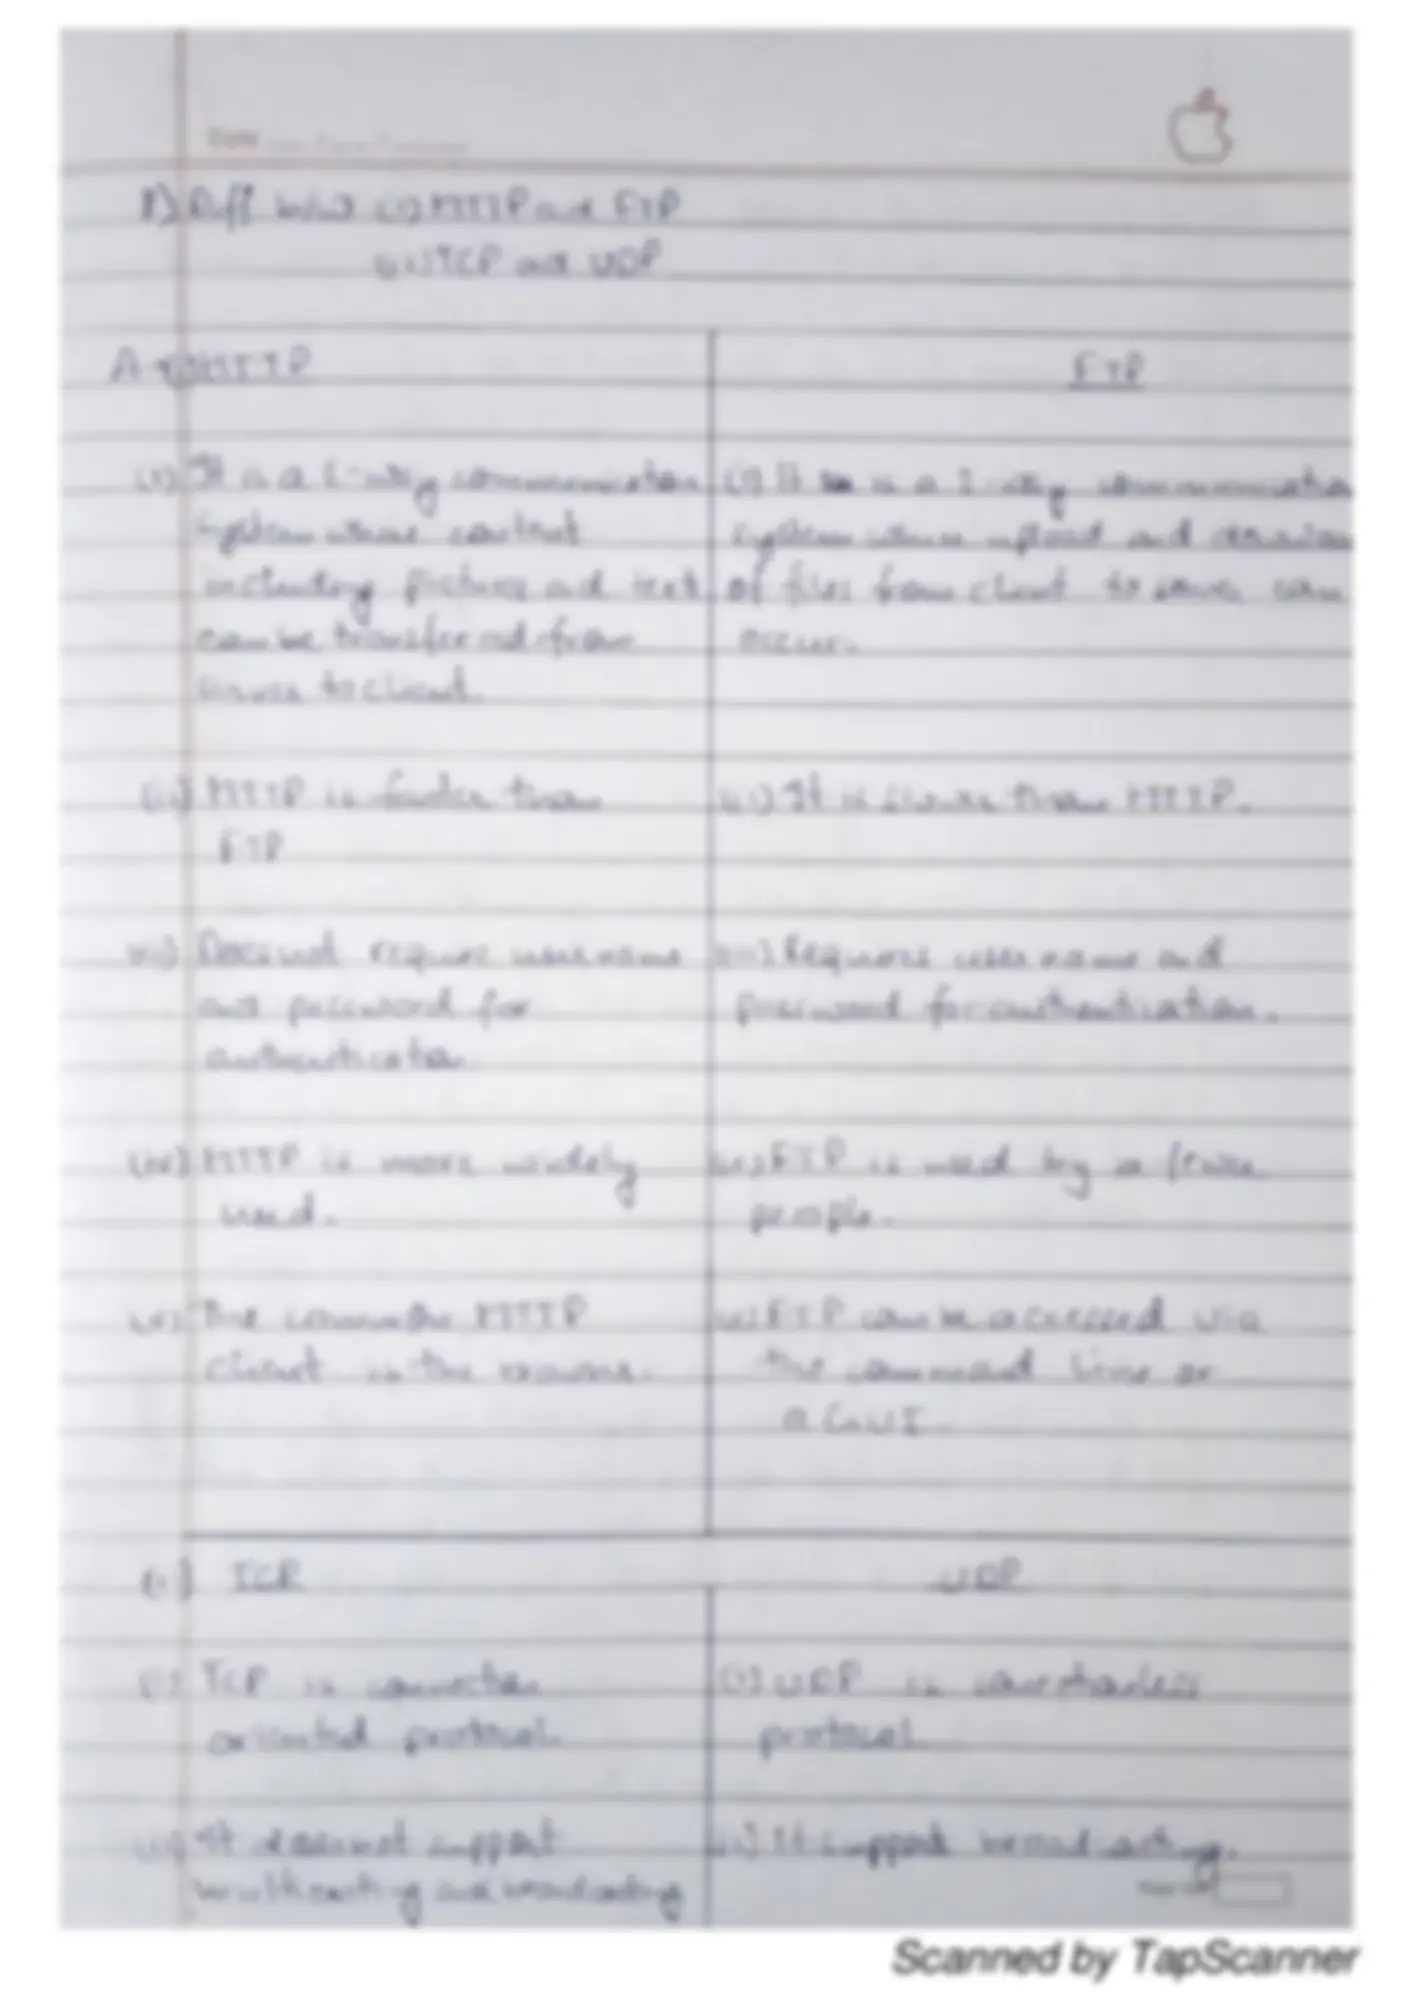 Date
1) Diff b/w (i) HTTP and FTP
(ii) TCP and UDP
A-1) HTTP
FTP
(i) It is a 1-way communication
system where content
including picture and text
can be transferred from
server to client.
(i) It is a 2-way communication
system where upload and
of files from client to server can
occur.
(ii) HTTP is faster than
FTP
(ii) It is slower than HTTP.
iii) Does not require username
and password for
authentication
iii) Requires user name and
password for authentication.
(iv) HTTP is more widely
used.
iv) FTP is used by a fewer
people.
(v) The common HTTP
client is the browser.
v) FTP can be accessed via
the command line or
a GUI.
(ii) TCP
UDP
(i) TCP is connection
oriented protocol.
(i) UDP is connectionless
protocol
(ii) It does not support
multicasting and broadcasting
ii) It support broadcasting.
Scanned by TapScanner